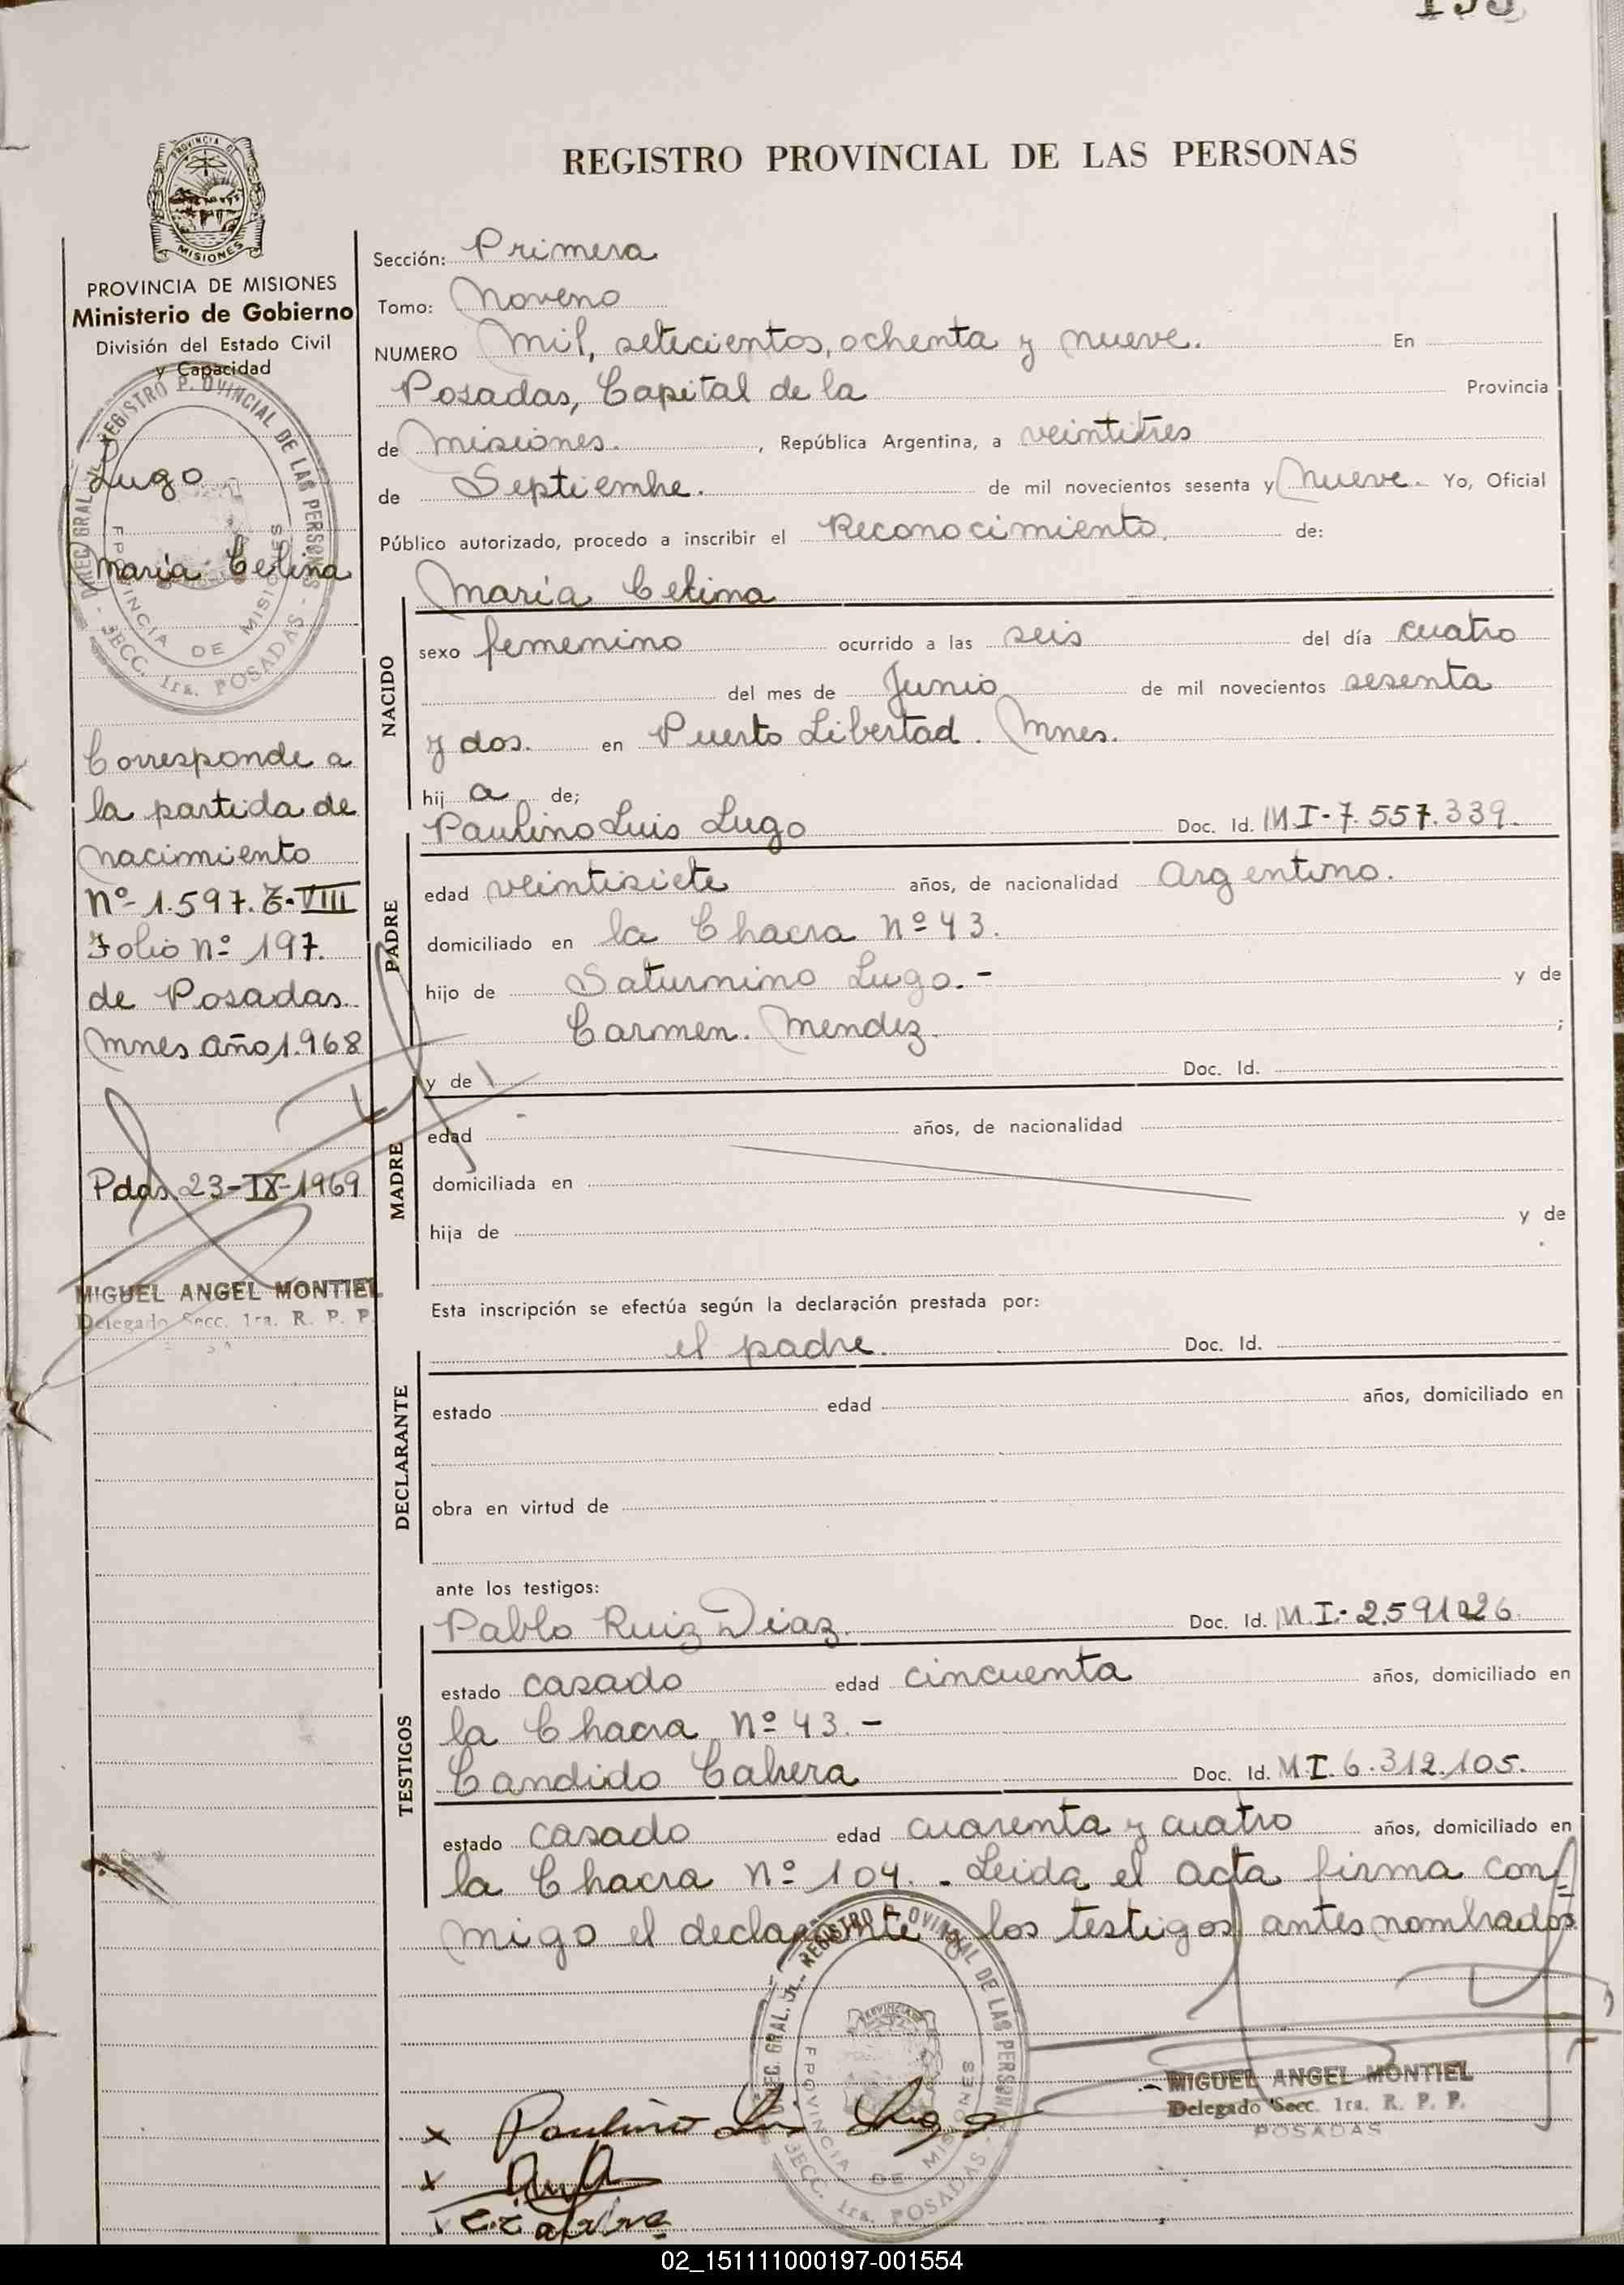 REGISTRO PROVINCIAL DE LAS PERSONAS
PROVINCIA DE MISIONES
Ministerio de Gobierno
División del Estado Civil
y Capacidad
Lugo
María Celina
Corresponde a
la partida de
nacimiento
Nº 1.597. T. VIII
Folio Nº 197.
de Posadas
Mnes año 1.968
Pdas. 23-IX-1969
MIGUEL ANGEL MONTIEL
Delegado Secc. 1ra. R. P. P.
Sección: Primera
Tomo: Noveno
NUMERO Mil, setecientos, ochenta y nueve. En
Posadas, Capital de la Provincia
de Misiones. , República Argentina, a veintitres
de Septiembre. de mil novecientos sesenta y Nueve. Yo, Oficial
Público autorizado, procedo a inscribir el Reconocimiento, de:
NACIDO
María Celina
sexo femenino ocurrido a las seis del día cuatro
del mes de Junio de mil novecientos sesenta
y dos. en Puerto Libertad. Mnes.
hij a de;
PADRE
Paulino Luis Lugo Doc. Id. M I-7.557.339.
edad veintisiete años, de nacionalidad argentino.
domiciliado en la Chacra Nº 43.
hijo de Saturnino Lugo.- y de
Carmen. Mendez. ;
MADRE
y de Doc. Id.
edad años, de nacionalidad
domiciliada en
hija de y de
Esta inscripción se efectúa según la declaración prestada por:
DECLARANTE
el padre. Doc. Id.
estado edad años, domiciliado en
obra en virtud de
ante los testigos:
TESTIGOS
Pablo Ruiz Diaz. Doc. Id. M.I.- 2.591.026.
estado casado edad cincuenta años, domiciliado en
la Chacra Nº 43.-
Candido Cabrera Doc. Id. M.I. 6.312.105.
estado casado edad cuarenta y cuatro años, domiciliado en
la Chacra Nº 104.- Leida el acta firma con=
migo el declarante y los testigos antes nombrados
DIREC. GRAL. REGISTRO PROVINCIAL DE LAS PERSONAS
PROVINCIA DE MISIONES
SECC. 1ra. POSADAS
MIGUEL ANGEL MONTIEL
Delegado Secc. 1ra. R. P. P.
POSADAS
x Paulino Luis Lugo
x
02_151111000197-001554